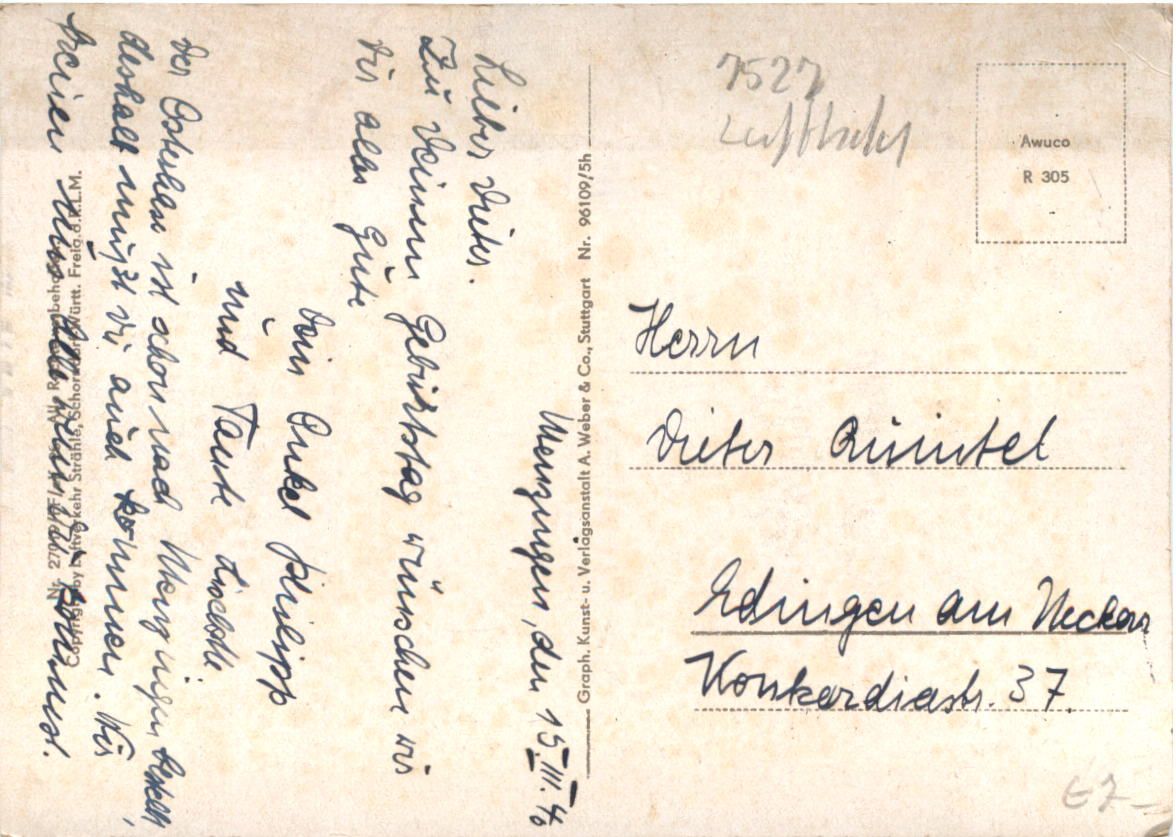 Menzingen, den 15.III.40
Lieber Dieter.
Zu Deinem Geburtstag wünschen wir
Dir alles Gute
Dein Onkel Philipp
und Tante Liselotte
Der Osterhas ist schon nach Menzingen bestellt,
deshalb mußt Du auch kommen. Wir
freuen uns alle wenn Du kommst.
Nr. 27
Copyright by Luftverkehr Strähle, Schorndorf Württ. Freig. d. R.L.M.
Graph. Kunst- u. Verlagsanstalt A. Weber & Co., Stuttgart Nr. 96109/5h
7527
Awuco
R 305
Herrn
Dieter Quintel
Edingen am Neckar
Konkordiastr. 37.
€7-